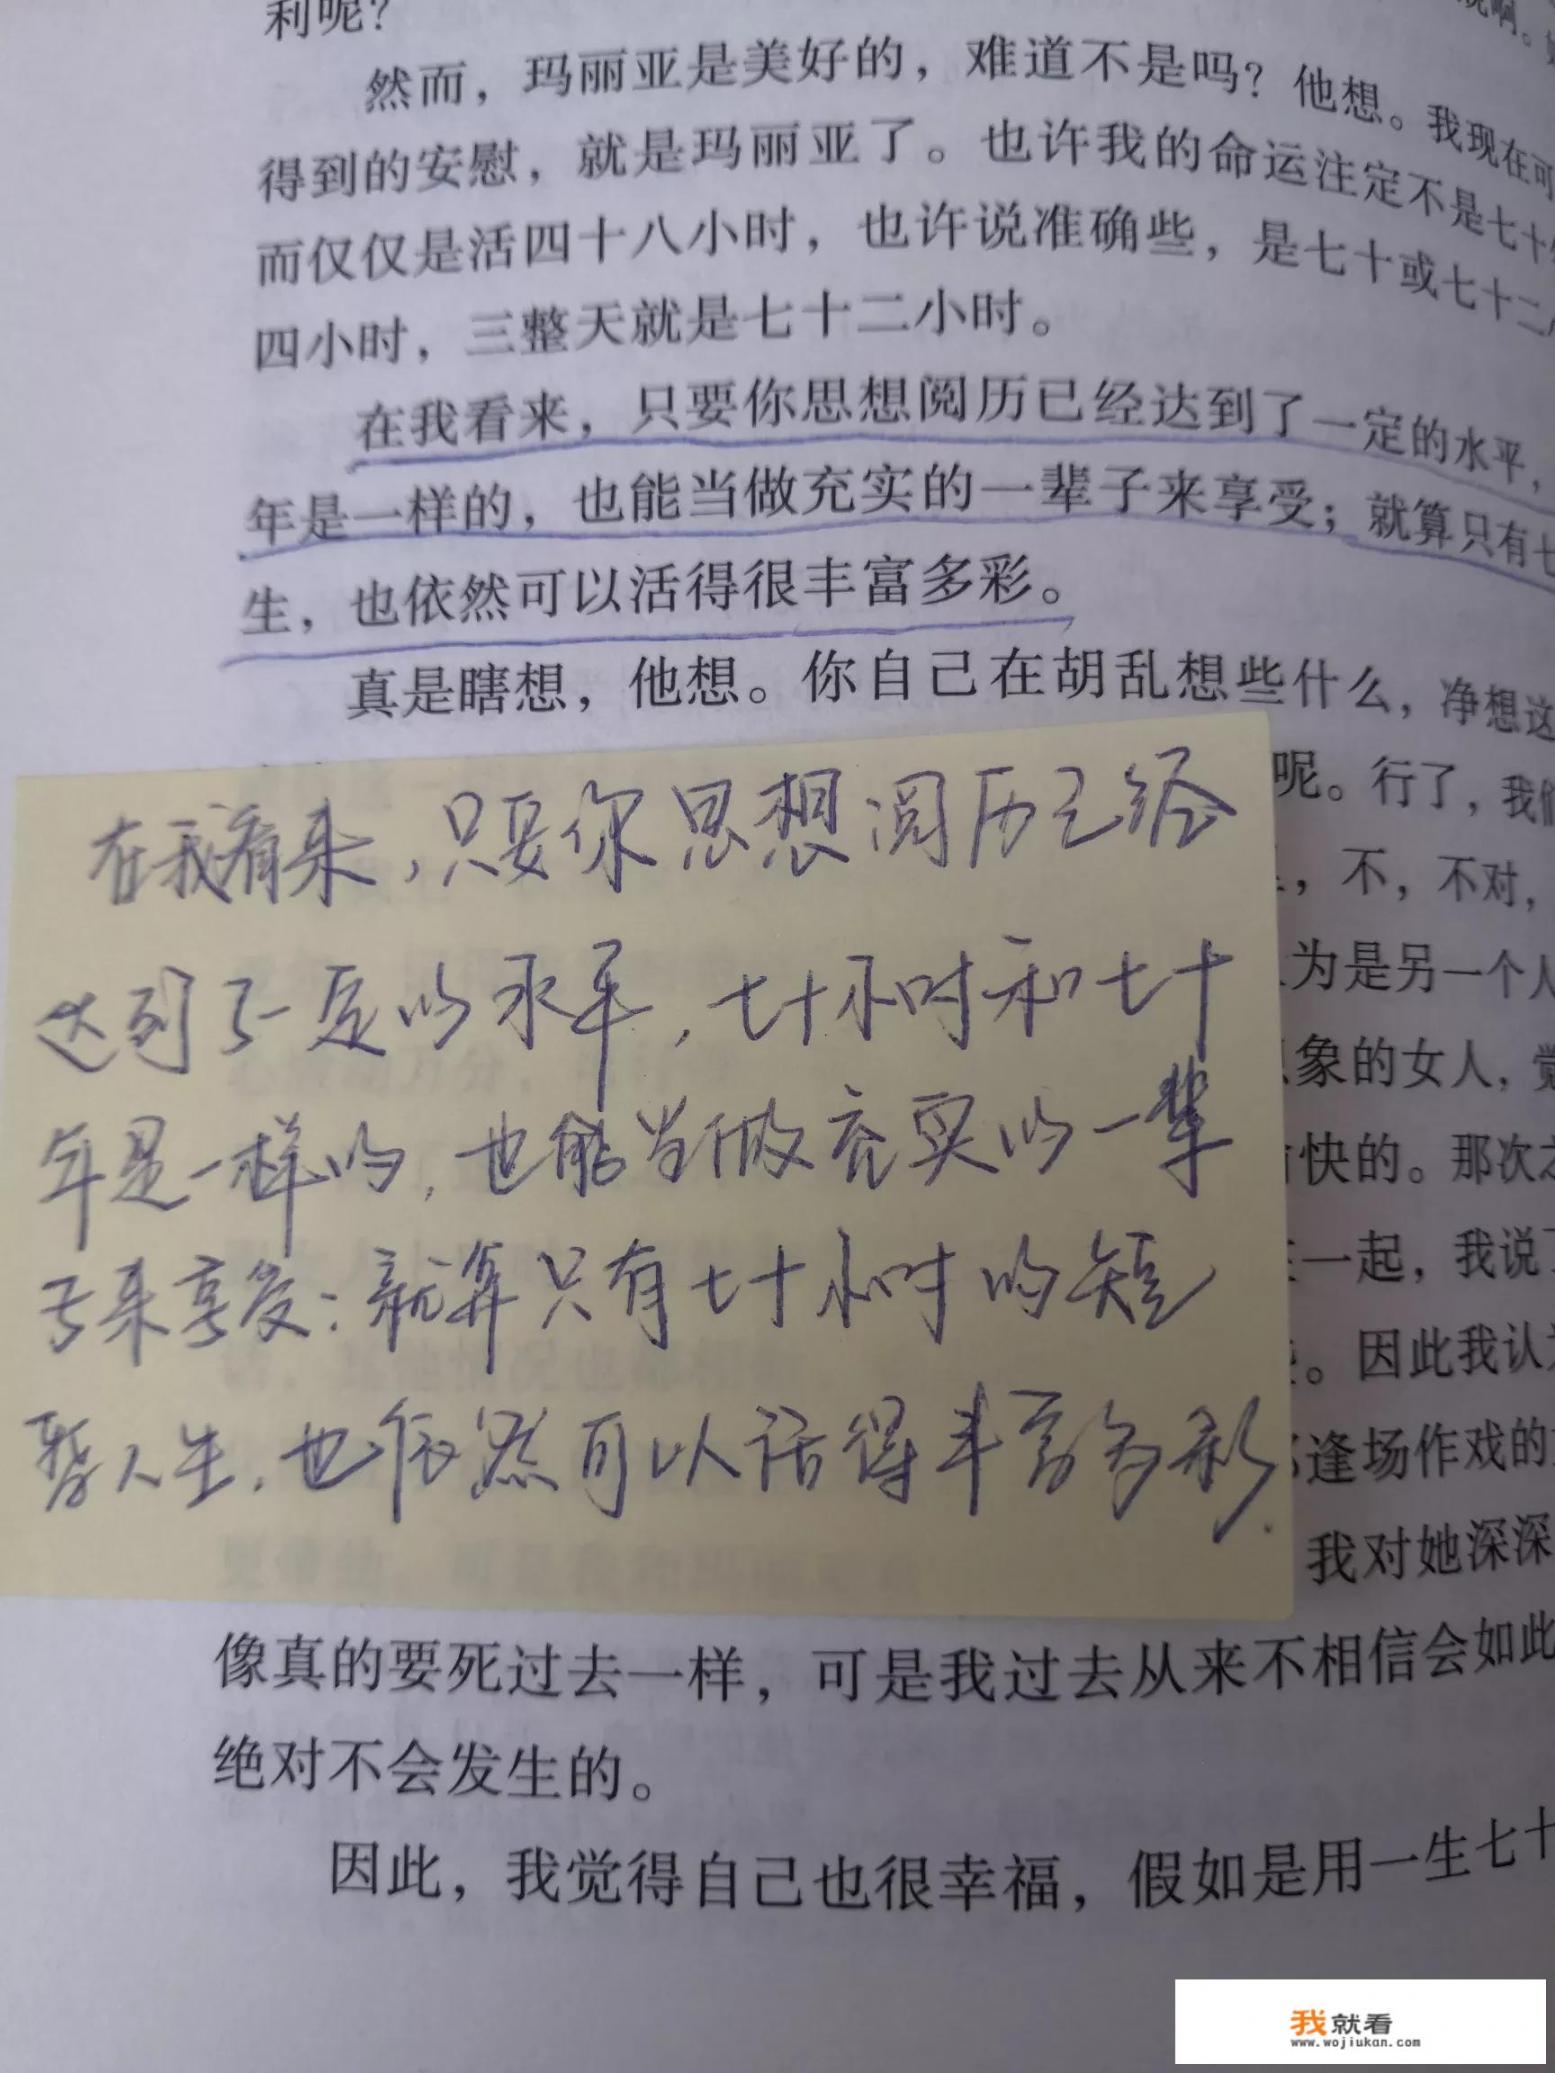 利呢？
然而，玛丽亚是美好的，难道不是吗？他想。我现在可
得到的安慰，就是玛丽亚了。也许我的命运注定不是七十
而仅仅是活四十八小时，也许说准确些，是七十或七十二
四小时，三整天就是七十二小时。
在我看来，只要你思想阅历已经达到了一定的水平，
年是一样的，也能当做充实的一辈子来享受；就算只有七
生，也依然可以活得很丰富多彩。
真是瞎想，他想。你自己在胡乱想些什么，净想这
呢。行了，我们
，不，不对，
为是另一个人
象的女人，觉
快的。那次
一起，我说了
。因此我认为
逢场作戏的
我对她深深
在我看来，只要你思想阅历已经
达到了一定的水平，七十小时和七十
年是一样的，也能当做充实的一辈
子来享受：就算只有七十小时的短
暂人生，也依然可以活得丰富多彩.
像真的要死过去一样，可是我过去从来不相信会如此
绝对不会发生的。
因此，我觉得自己也很幸福，假如是用一生七十
我就看
www.wojiukan.com